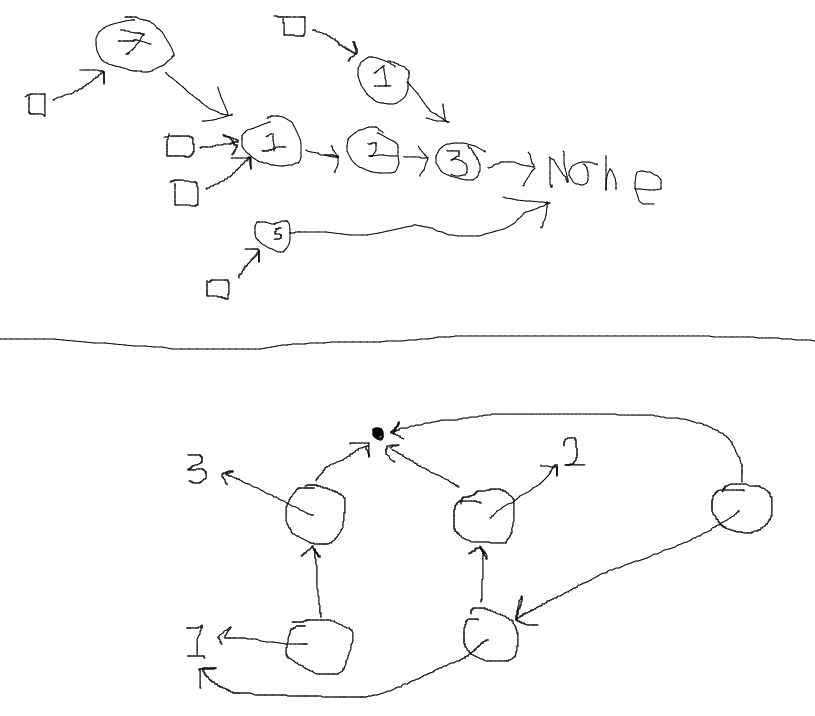 7
1
1 2 3 None
5
3 2
1